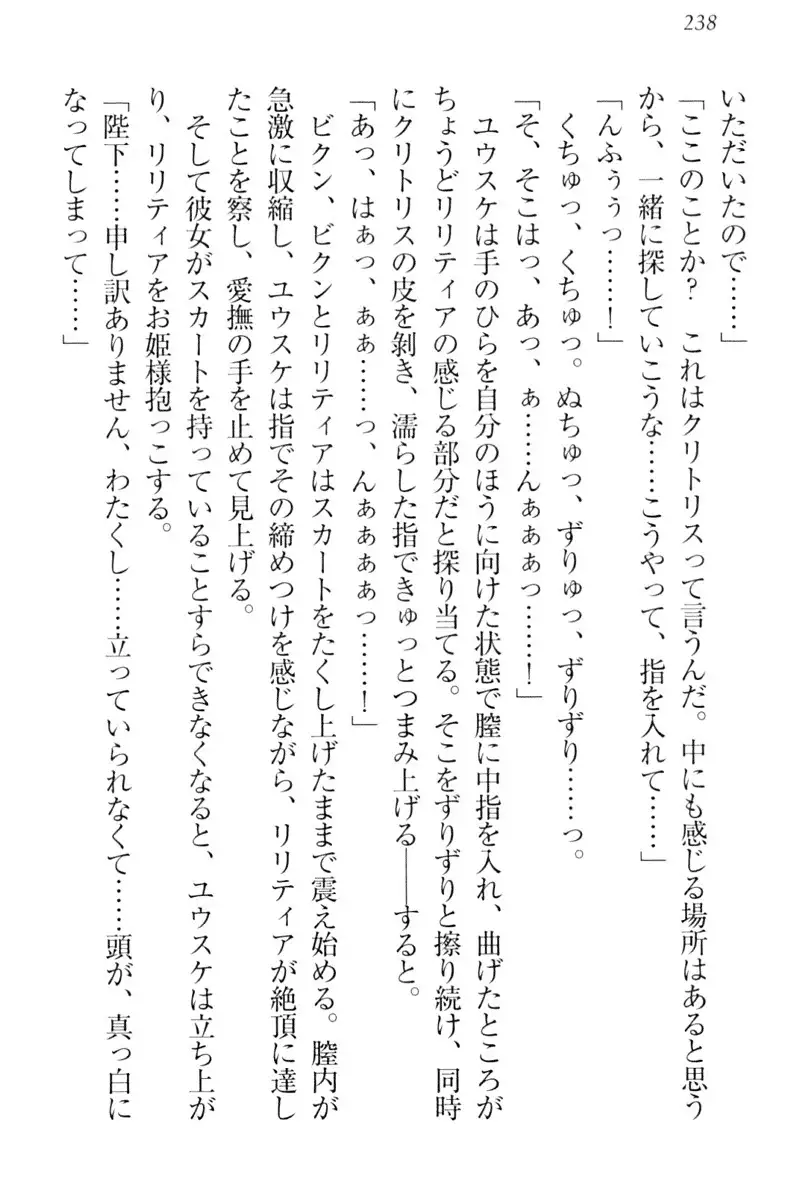 238
いただいたので……」
「ここのことか?　これはクリトリスって言うんだ。中にも感じる場所はあると思う
から、一緒に探していこうな……こうやって、指を入れて……」
「んふぅぅっ……!」
くちゅっ、くちゅっ。ぬちゅっ、ずりゅっ、ずりずり……っ。
「そ、そこはっ、あっ、ぁ……んぁぁぁっ……!」
ユウスケは手のひらを自分のほうに向けた状態で膣に中指を入れ、曲げたところが
ちょうどリリティアの感じる部分だと探り当てる。そこをずりずりと擦り続け、同時
にクリトリスの皮を剥き、濡らした指できゅっとつまみ上げる――すると。
「あっ、はぁっ、ぁぁ……っ、んぁぁぁぁっ……!」
ビクン、ビクンとリリティアはスカートをたくし上げたままで震え始める。膣内が
急激に収縮し、ユウスケは指でその締めつけを感じながら、リリティアが絶頂に達し
たことを察し、愛撫の手を止めて見上げる。
そして彼女がスカートを持っていることすらできなくなると、ユウスケは立ち上が
り、リリティアをお姫様抱っこする。
「陛下……申し訳ありません、わたくし……立っていられなくて……頭が、真っ白に
なってしまって……」